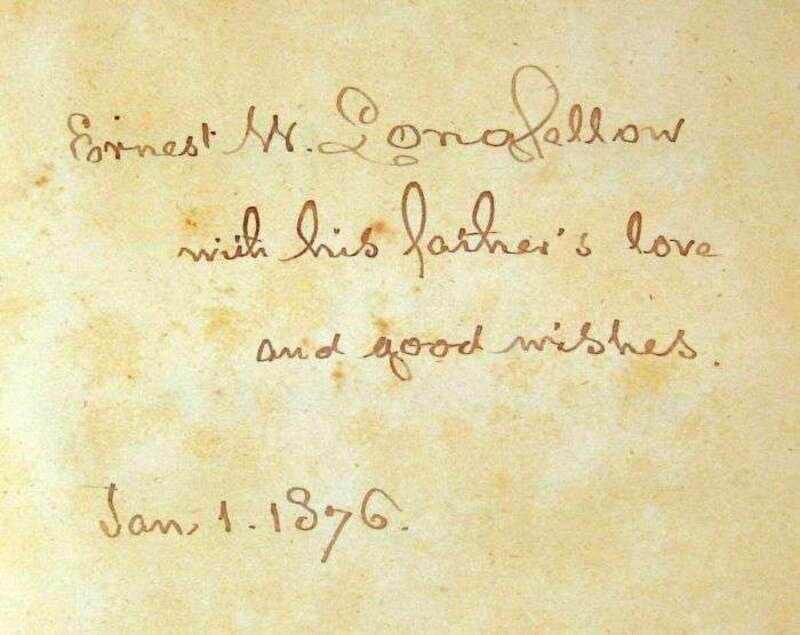 Ernest W. Longfellow
with his father's love
and good wishes.
Jan. 1. 1876.